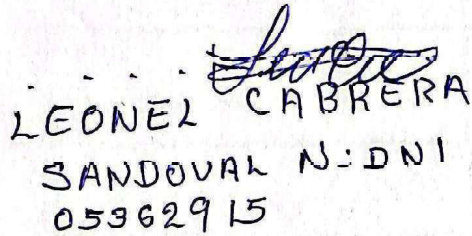 LEONEL CABRERA
SANDOVAL N:DNI
05362915